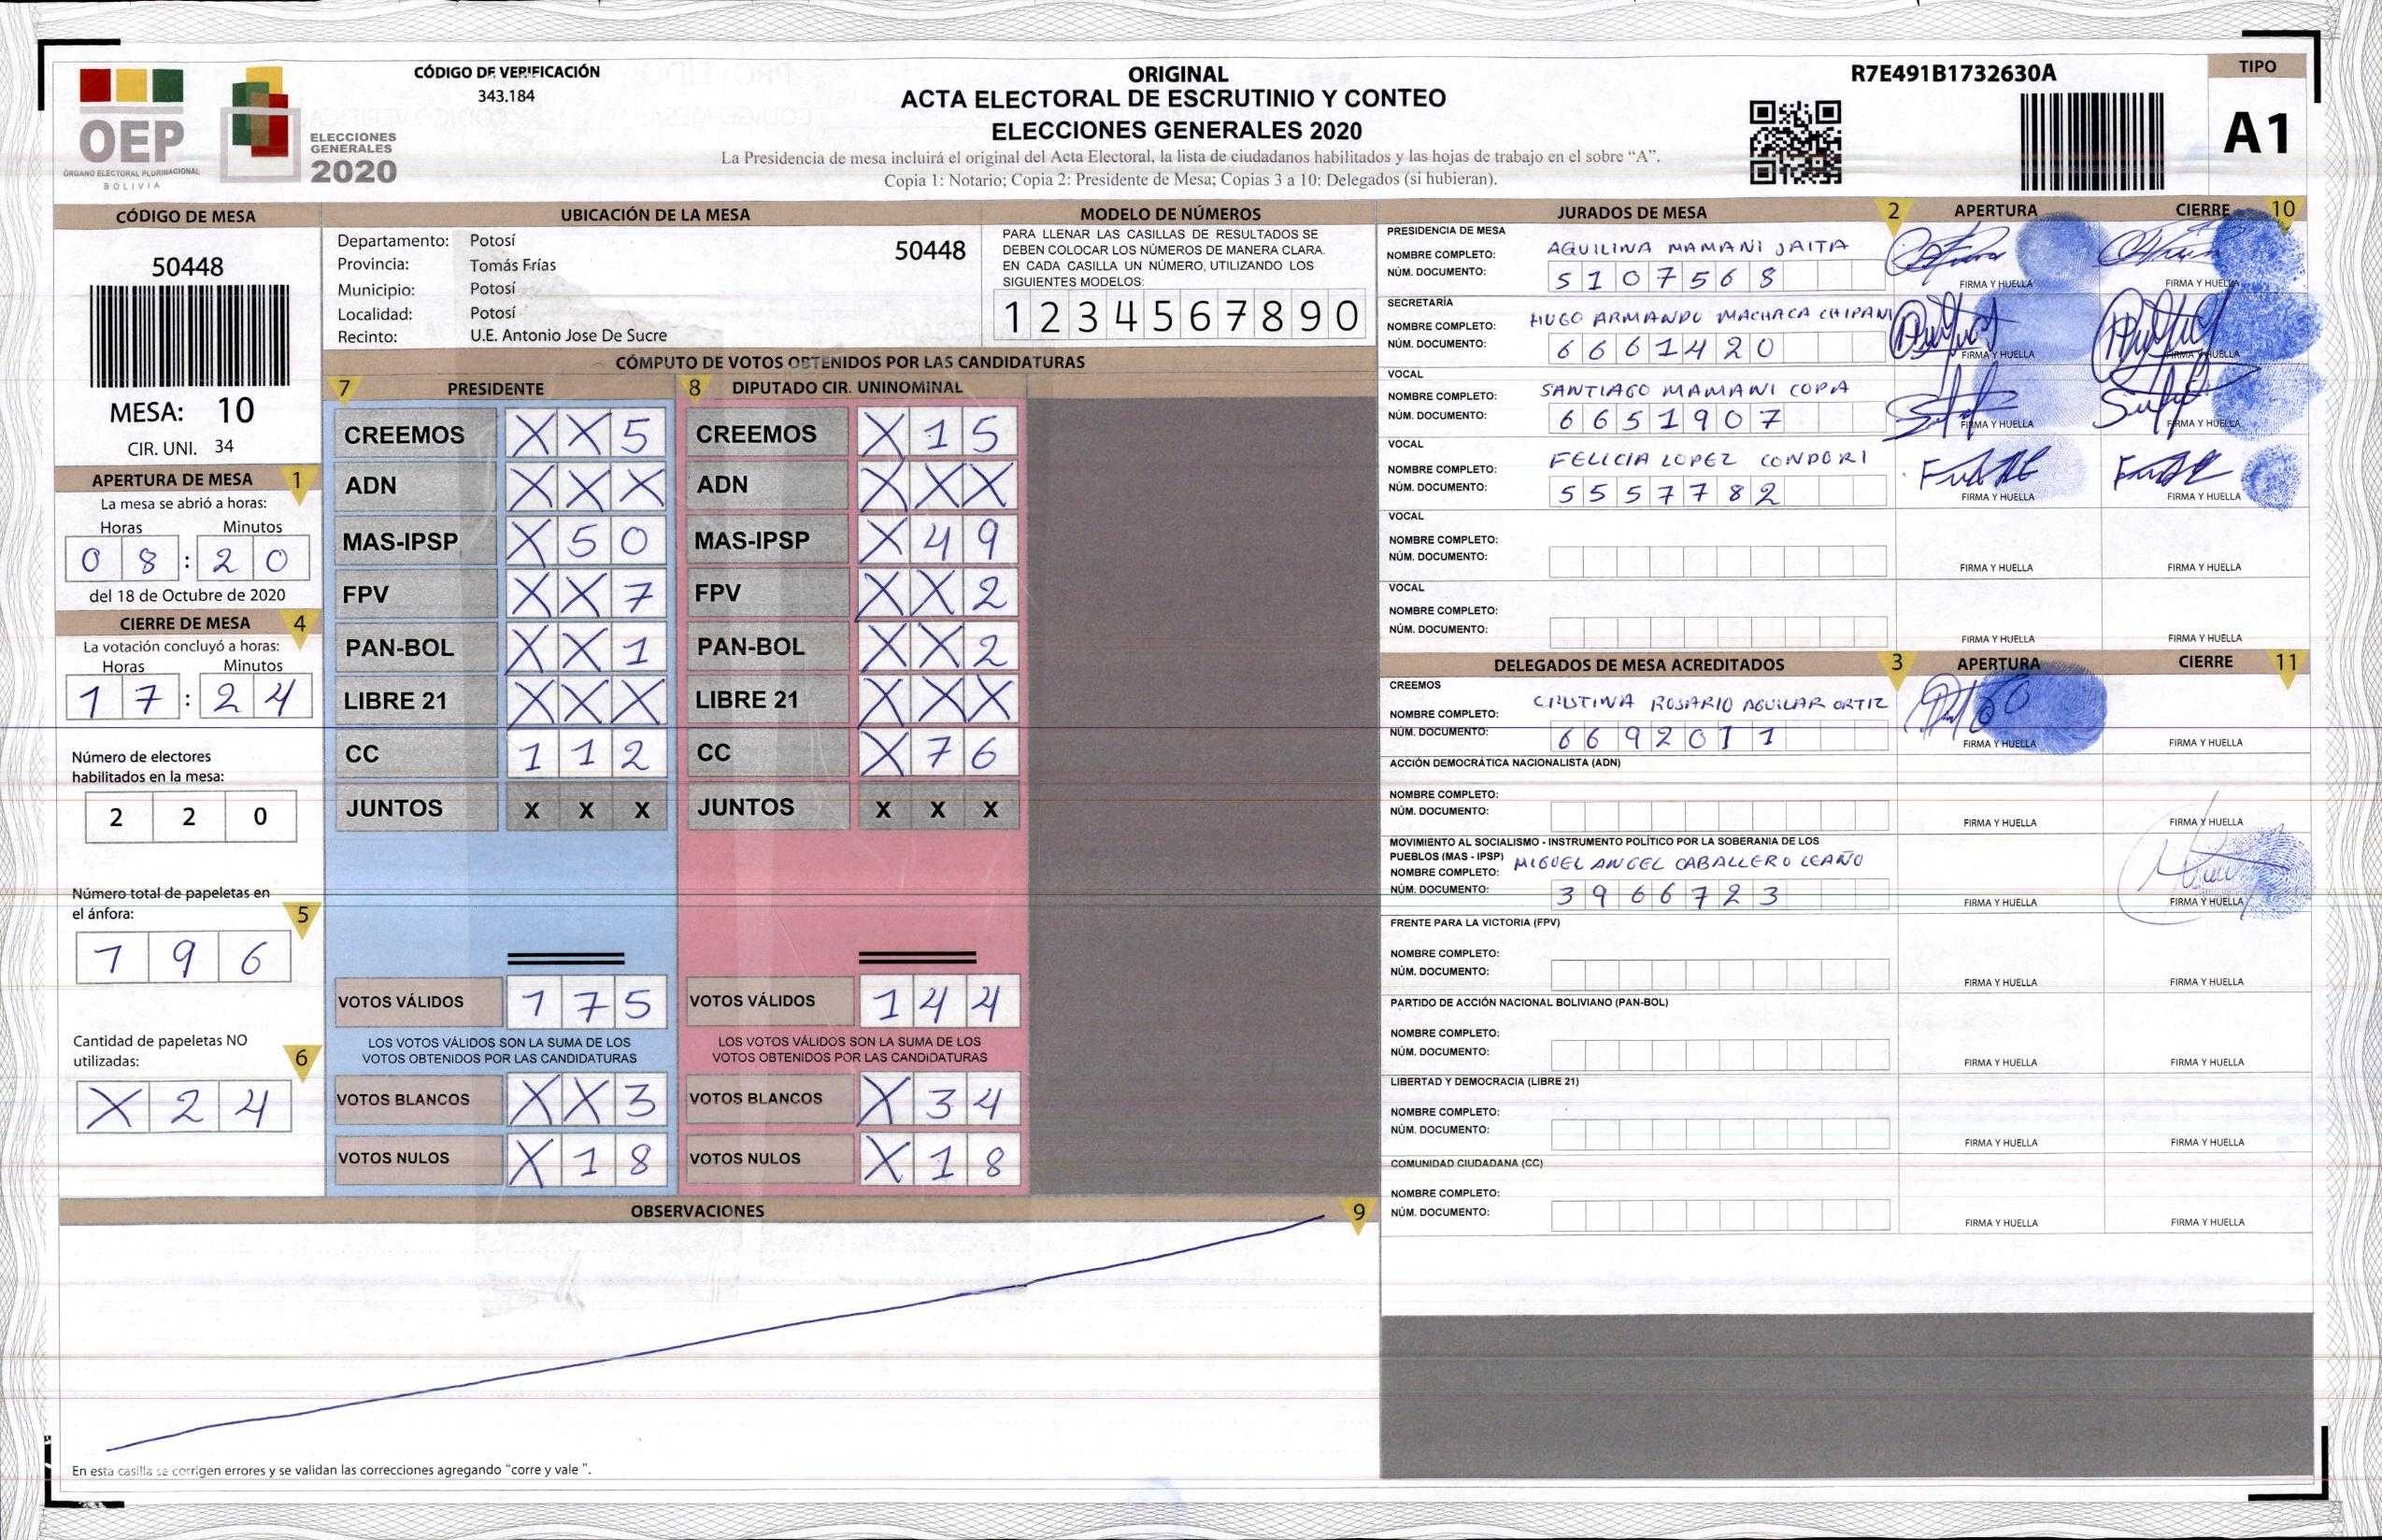 OEP
ÓRGANO ELECTORAL PLURINACIONAL
BOLIVIA
ELECCIONES
GENERALES
2020
CÓDIGO DE VERIFICACIÓN
343.184
ORIGINAL
ACTA ELECTORAL DE ESCRUTINIO Y CONTEO
ELECCIONES GENERALES 2020
La Presidencia de mesa incluirá el original del Acta Electoral, la lista de ciudadanos habilitados y las hojas de trabajo en el sobre “A”.
Copia 1: Notario; Copia 2: Presidente de Mesa; Copias 3 a 10: Delegados (si hubieran).
R7E491B1732630A
TIPO
A1
CÓDIGO DE MESA
50448
MESA: 10
CIR. UNI. 34
APERTURA DE MESA 1
La mesa se abrió a horas:
Horas Minutos
0 8 : 2 0
del 18 de Octubre de 2020
CIERRE DE MESA 4
La votación concluyó a horas:
Horas Minutos
1 7 : 2 4
Número de electores
habilitados en la mesa:
2 2 0
Número total de papeletas en
el ánfora: 5
1 9 6
Cantidad de papeletas NO
utilizadas: 6
X 2 4
UBICACIÓN DE LA MESA
Departamento: Potosí 50448
Provincia: Tomás Frías
Municipio: Potosí
Localidad: Potosí
Recinto: U.E. Antonio Jose De Sucre
MODELO DE NÚMEROS
PARA LLENAR LAS CASILLAS DE RESULTADOS SE
DEBEN COLOCAR LOS NÚMEROS DE MANERA CLARA.
EN CADA CASILLA UN NÚMERO, UTILIZANDO LOS
SIGUIENTES MODELOS:
1 2 3 4 5 6 7 8 9 0
CÓMPUTO DE VOTOS OBTENIDOS POR LAS CANDIDATURAS
7 PRESIDENTE 8 DIPUTADO CIR. UNINOMINAL
CREEMOS X X 5 CREEMOS X 1 5
ADN X X X ADN X X X
MAS-IPSP X 5 0 MAS-IPSP X 4 9
FPV X X 7 FPV X X 2
PAN-BOL X X 1 PAN-BOL X X 2
LIBRE 21 X X X LIBRE 21 X X X
CC 1 1 2 CC X 7 6
JUNTOS X X X JUNTOS X X X
VOTOS VÁLIDOS 1 7 5 VOTOS VÁLIDOS 1 4 4
LOS VOTOS VÁLIDOS SON LA SUMA DE LOS LOS VOTOS VÁLIDOS SON LA SUMA DE LOS
VOTOS OBTENIDOS POR LAS CANDIDATURAS VOTOS OBTENIDOS POR LAS CANDIDATURAS
VOTOS BLANCOS X X 3 VOTOS BLANCOS X 3 4
VOTOS NULOS X 1 8 VOTOS NULOS X 1 8
OBSERVACIONES 9
En esta casilla se corrigen errores y se validan las correcciones agregando “corre y vale ”.
JURADOS DE MESA 2 APERTURA CIERRE 10
PRESIDENCIA DE MESA
NOMBRE COMPLETO: AQUILINA MAMANI JAITA
NÚM. DOCUMENTO: 5 1 0 7 5 6 8 FIRMA Y HUELLA FIRMA Y HUELLA
SECRETARÍA
NOMBRE COMPLETO: HUGO ARMANDO MACHACA CHIPANI
NÚM. DOCUMENTO: 6 6 6 1 4 2 0 FIRMA Y HUELLA FIRMA Y HUELLA
VOCAL
NOMBRE COMPLETO: SANTIAGO MAMANI COPA
NÚM. DOCUMENTO: 6 6 5 1 9 0 7 FIRMA Y HUELLA FIRMA Y HUELLA
VOCAL
NOMBRE COMPLETO: FELICIA LOPEZ CONDORI
NÚM. DOCUMENTO: 5 5 5 7 7 8 2 FIRMA Y HUELLA FIRMA Y HUELLA
VOCAL
NOMBRE COMPLETO:
NÚM. DOCUMENTO: FIRMA Y HUELLA FIRMA Y HUELLA
VOCAL
NOMBRE COMPLETO:
NÚM. DOCUMENTO: FIRMA Y HUELLA FIRMA Y HUELLA
DELEGADOS DE MESA ACREDITADOS 3 APERTURA CIERRE 11
CREEMOS
NOMBRE COMPLETO: CRISTINA ROSARIO AGUILAR ORTIZ
NÚM. DOCUMENTO: 6 6 9 2 0 1 1 FIRMA Y HUELLA FIRMA Y HUELLA
ACCIÓN DEMOCRÁTICA NACIONALISTA (ADN)
NOMBRE COMPLETO:
NÚM. DOCUMENTO: FIRMA Y HUELLA FIRMA Y HUELLA
MOVIMIENTO AL SOCIALISMO - INSTRUMENTO POLÍTICO POR LA SOBERANIA DE LOS
PUEBLOS (MAS - IPSP)
NOMBRE COMPLETO: MIGUEL ANGEL CABALLERO LEAÑO
NÚM. DOCUMENTO: 3 9 6 6 7 2 3 FIRMA Y HUELLA FIRMA Y HUELLA
FRENTE PARA LA VICTORIA (FPV)
NOMBRE COMPLETO:
NÚM. DOCUMENTO: FIRMA Y HUELLA FIRMA Y HUELLA
PARTIDO DE ACCIÓN NACIONAL BOLIVIANO (PAN-BOL)
NOMBRE COMPLETO:
NÚM. DOCUMENTO: FIRMA Y HUELLA FIRMA Y HUELLA
LIBERTAD Y DEMOCRACIA (LIBRE 21)
NOMBRE COMPLETO:
NÚM. DOCUMENTO: FIRMA Y HUELLA FIRMA Y HUELLA
COMUNIDAD CIUDADANA (CC)
NOMBRE COMPLETO:
NÚM. DOCUMENTO: FIRMA Y HUELLA FIRMA Y HUELLA